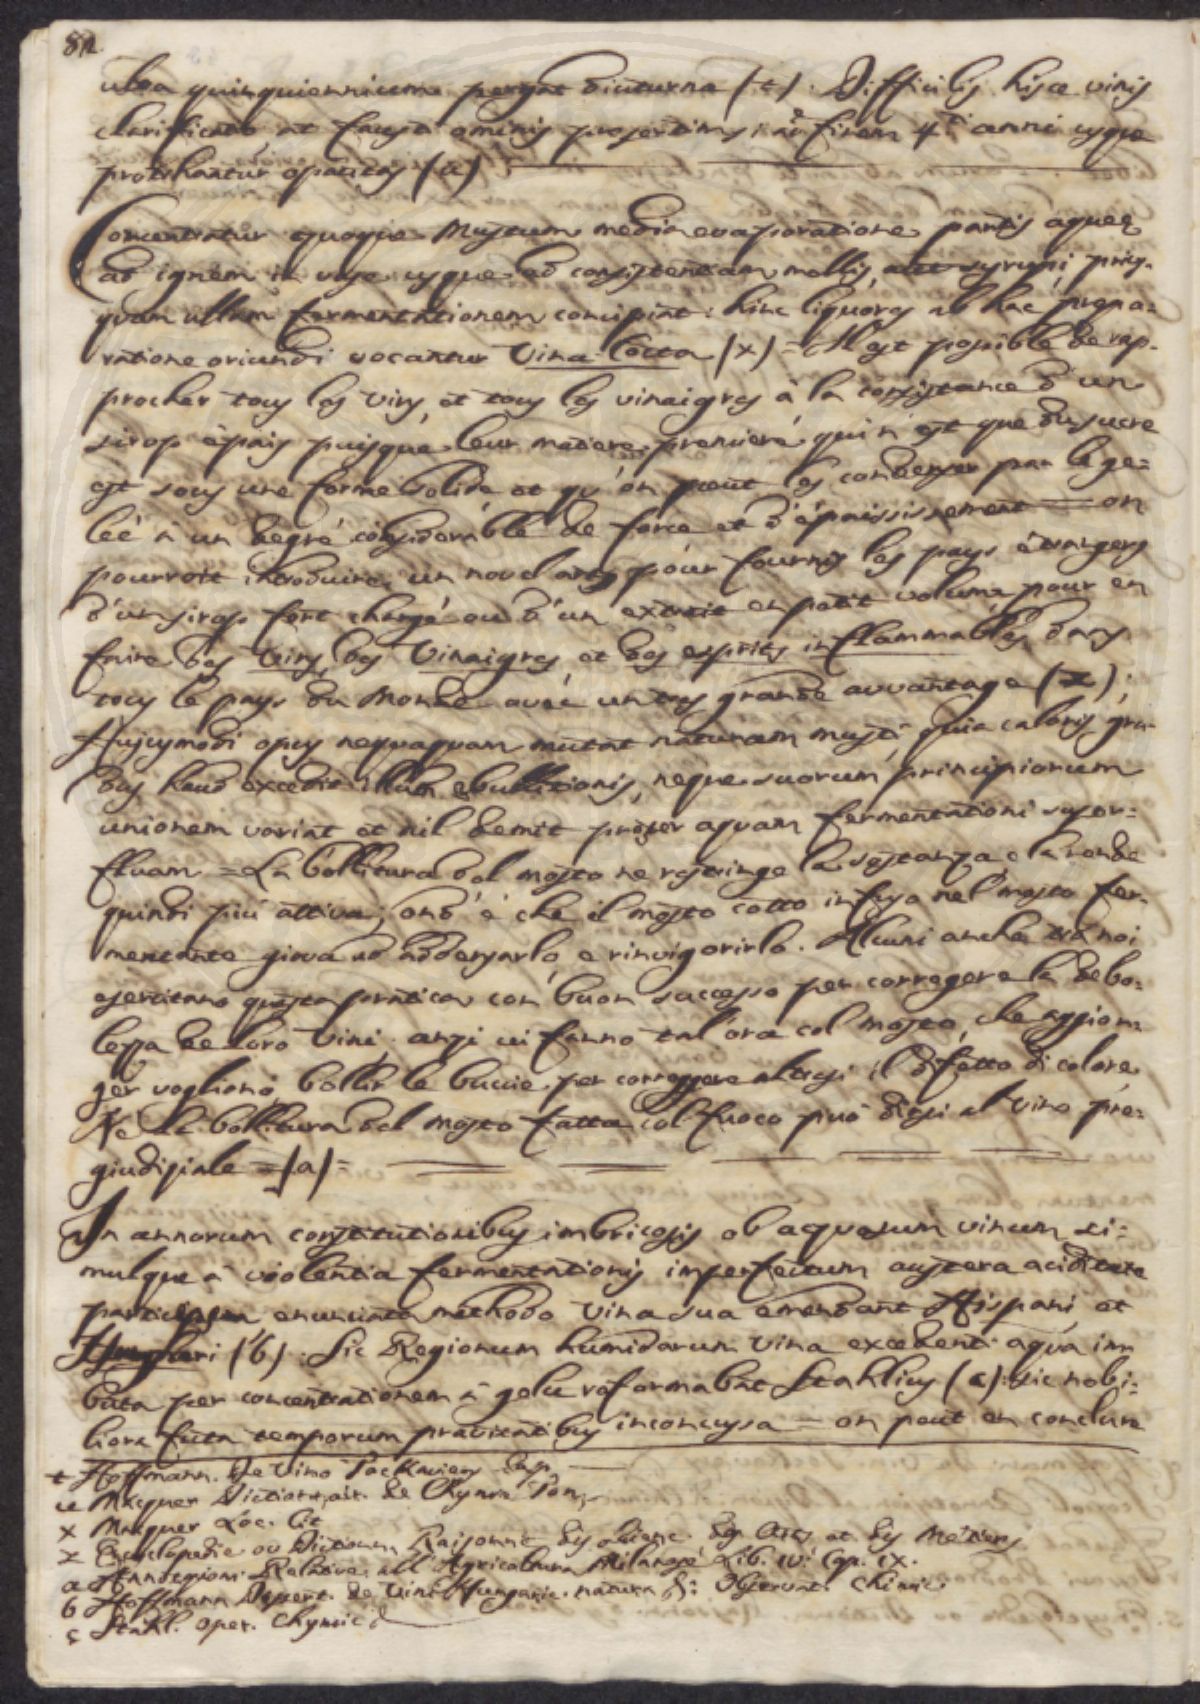 82
ultra quinquiennium pergat diuturna (t). Difficilis hisce vinis
clarificatio at fausti ominis praesertim; ad finem 4ti anni usque
protrhantur opacitas (u)
Concentratur quoque Mustum media evaporatione partis aqueę
ad ignem in vase usque ad consistentiam mollis, aut syrupi prius-
quam ullam fermentationem concipiat: hinc liquores ab hac prepa=
ratione oriundi vocantur Vina Cocta (x) = Il est possible de rap-
procher tous les vins, et tous les vinaigres à la consistance d'un
sirop épais puisque leur matiere premiere qui n'est que du sucre
est sous une forme solide et qu'on peut les condenser par la ge=
leé à un degré considerable de force et d'épaississement — on
pourroit introduire un nouvel art pour fournir les pays étrangers
d'un sirop fort chargé ou d'un extrait en petit volume pour en
faire des Vins, des Vinaigres et des esprits inflammables dans
tous le pays du Monde avec un tres grande avvantage (z);
Hujusmodi opus nequaquam mutat naturam musti quia caloris gra-
dus haud excedit illum ebullitionis, neque suorum principiorum
unionem variat et nil demit praeter aquam fermentationi super=
fluam = La bollitura del mosto ne restringe la sostanza e la rende
quindi più attiva; ond'è che il mosto cotto infuso nel mosto fer-
mentante giova ad addensarlo, e rinvigorirlo. Alcuni anche tra noi
esercitano questa pratica con buon successo per corregere la debo=
lezza de loro Vini, anzi vi fanno tal'ora col mosto, che aggion=
ger vogliono, bollir le buccie per correggere altresi il difetto di colore.
Ne la bollitura del mosto fatta col fuoco può dirsi al Vino pre=
giudiziale = (a) =
In annorum constitutionibus imbricosis ob aquosum vinum si=
mulque à violentia fermentationis imperfectum austera aciditate
particeps enunciata methodo Vina sua emendant Hispani et
Hungari (b). Sic Regionum humidarum Vina excedenti aqua im
buta per concentrationem à gelu reformabat Stahlius (c): sic nobi=
liora futa temporum pravitatibus inconcussa — on peut en conclure
t Hoffmann. De Vino Tockaviens. Cap.
u Macquer Dictionnair. de Chymie Tom.
x Macquer Loc. Cit
z Enciclopedie ou Diction. Raisonné des scienc. des Arts et des Metiers
a Annotazioni Relative all'Agricoltura Milanese Lib. IV: Cap. IX.
b Hoffmann Expert. de Vini Hungaric. natura &: Observat. Chimic.
c Stahl. oper. Chymic.